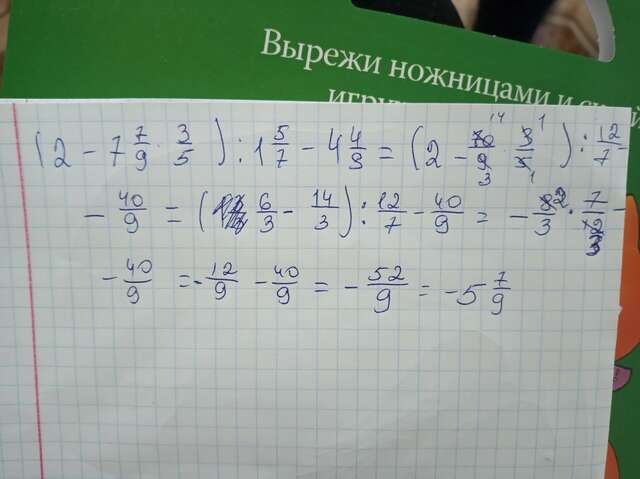 Вырежи ножницами и
(2 - 7 7/9 · 3/5) : 1 5/7 - 4 4/9 = (2 - 70/9 · 3/5) : 12/7 -
14 1
3 1
- 40/9 = (6/3 - 14/3) : 12/7 - 40/9 = - 8/3 · 7/12 -
2
3
- 40/9 = - 12/9 - 40/9 = - 52/9 = - 5 7/9